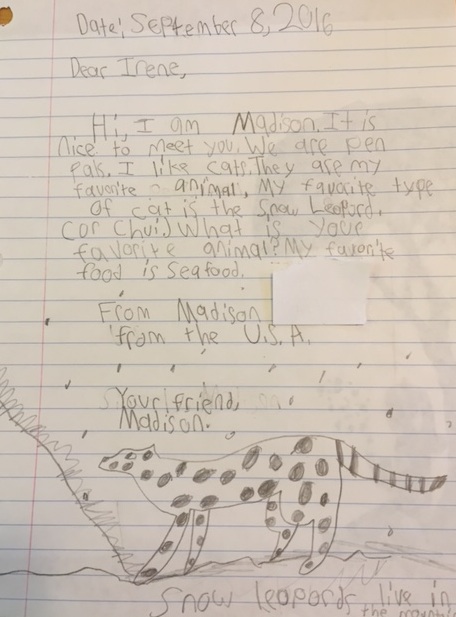 Date: September 8, 2016
Dear Irene,
Hi, I am Madison. It is
nice to meet you. We are pen
pals. I like cats. They are my
favorite animal, My favorite type
of cat is the Snow Leopard.
(or Chui) What is your
favorite animal? My favorite
food is seafood.
From Madison
from the U.S.A.
Your friend,
Madison.
Snow leopards live in
the